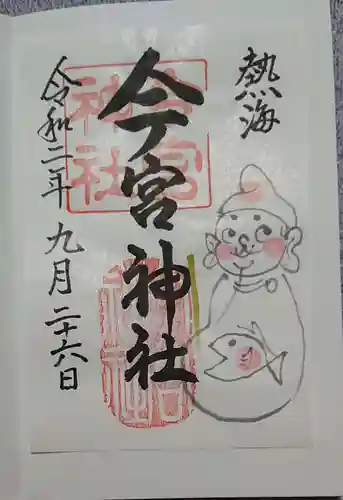 熱海
今宮神社
令和二年 九月二十六日
今宮
神社